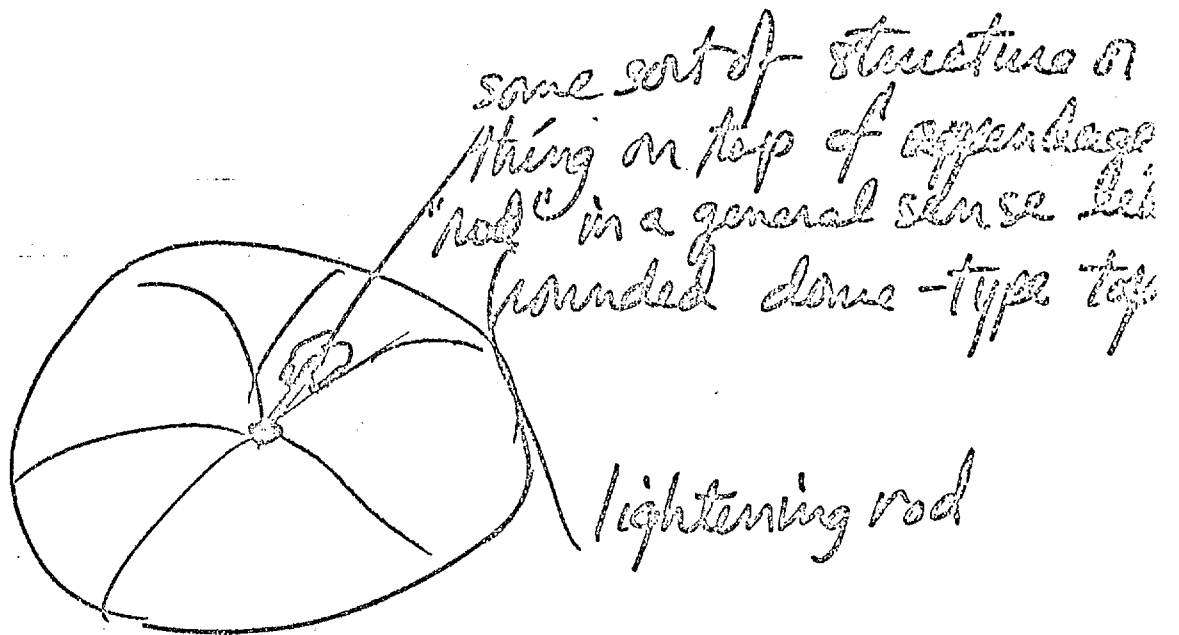 some sort of structure or
thing on top of appendage
"rod" in a general sense
(rounded dome-type top
lightening rod